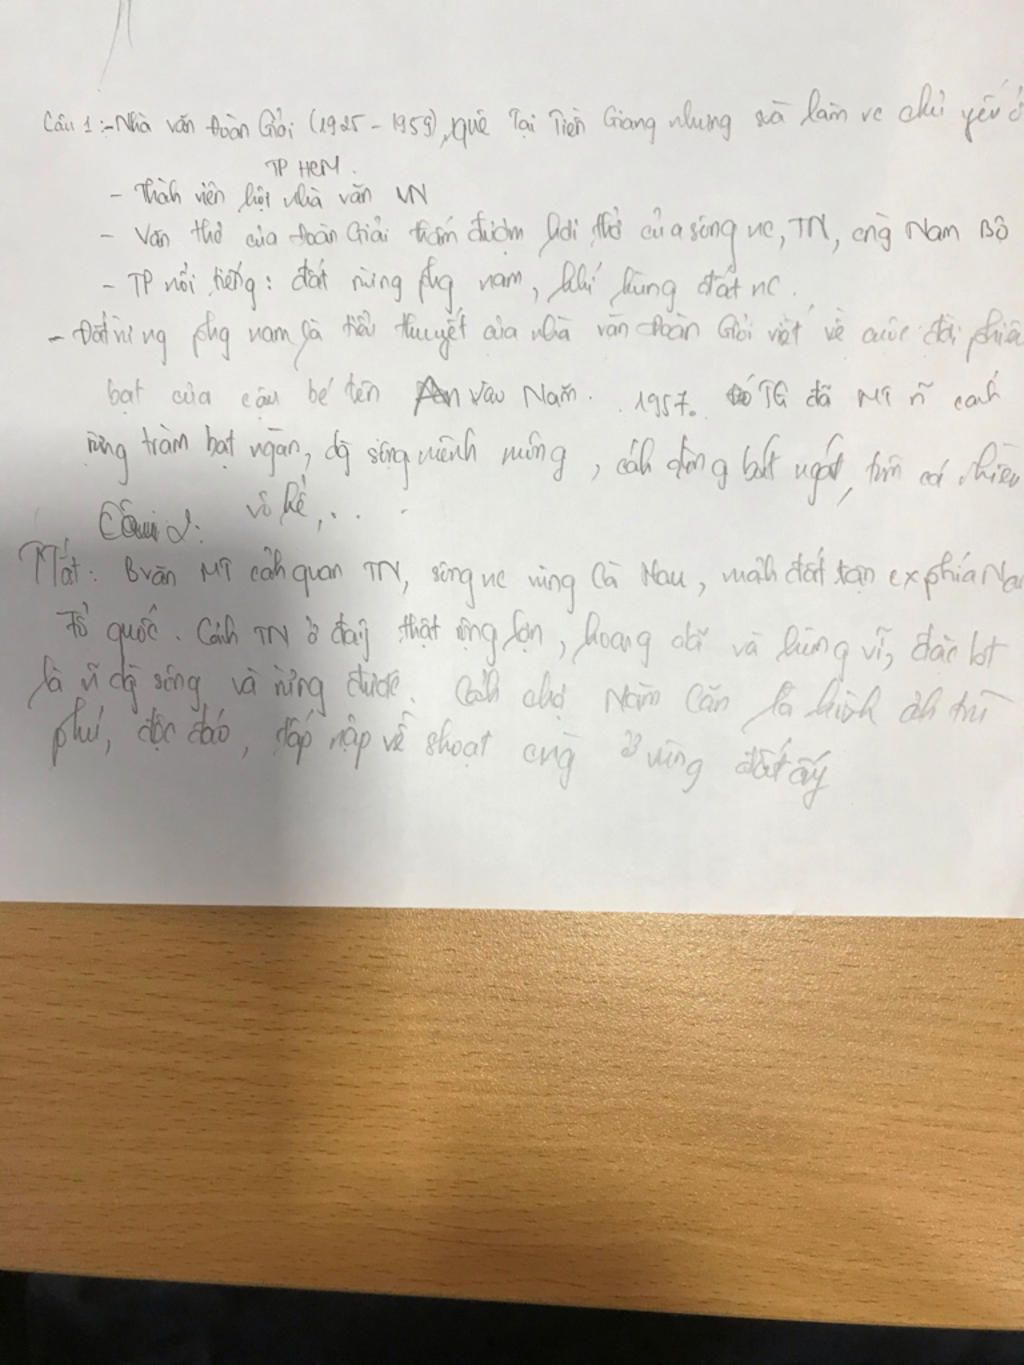 Câu 1: - Nhà văn Đoàn Giỏi (1925 - 1959), quê tại Tiền Giang nhưng và làm vc chủ yếu ở
TP HCM.
- Thành viên hội nhà văn VN
- Văn thơ của Đoàn Giỏi thấm đượm hơi thở của sông nc, TN, cng Nam Bộ
- TP nổi tiếng: đất rừng phg nam, khí hùng đất nc.
- Đất rừng phg nam là tiểu thuyết của nhà văn Đoàn Giỏi viết về cuộc đời phiêu
bạt của cậu bé tên An vào Năm. 1957. TG đã MT ~ cảnh
rừng tràm bạt ngàn, dg sông mênh mông, cánh đồng bát ngát, tôm cá nhiều
vô kể, . . .
Câu 2:
Mắt: Bvăn MT cảnh quan TN, sông nc vùng Cà Mau, mảnh đất tận phía Na
Tổ quốc. Cảnh TN ở đây thật rộng lớn, hoang dã và hùng vĩ, đặc bt
là ~ dg sông và rừng đước. Cảnh chợ Năm Căn là hình ảnh trù
phú, độc đáo, tấp nập về shoạt cng ở vùng đất ấy